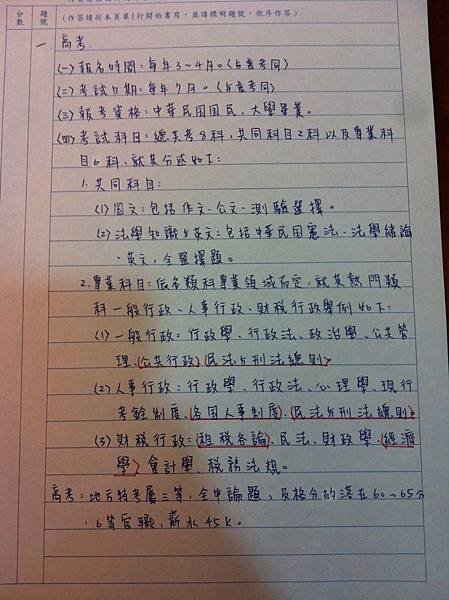 分數 題號 (作答請從本頁第1行開始書寫，並請標明題號，依序作答)
一、高考
(一)報名時間：每年3~4月。(与普考同)
(二)考試日期：每年7月。(与普考同)
(三)報考資格：中華民国国民、大學畢業。
(四)考試科目：總共考8科，共同科目2科以及專業科
目6科，就其分述如下：
1.共同科目：
(1)国文：包括作文、公文、測驗選擇。
(2)法學知識与英文：包括中華民国憲法、法學緒論
、英文，全選擇題。
2.專業科目：依各類科專業領域而定，就其熱門類
科一般行政、人事行政、財稅行政舉例如下：
(1)一般行政：行政學、行政法、政治學、公共管
理、公共行政、民法与刑法總則
(2)人事行政：行政學、行政法、心理學、現行
考銓制度、各国人事制度、民法与刑法總則
(3)財稅行政：租稅各論、民法、財政學、經濟
學、會計學、稅務法規。
高考：地方特考屬三等，全申論題，及格分約落在60~65分
，6等官職，薪水45k。